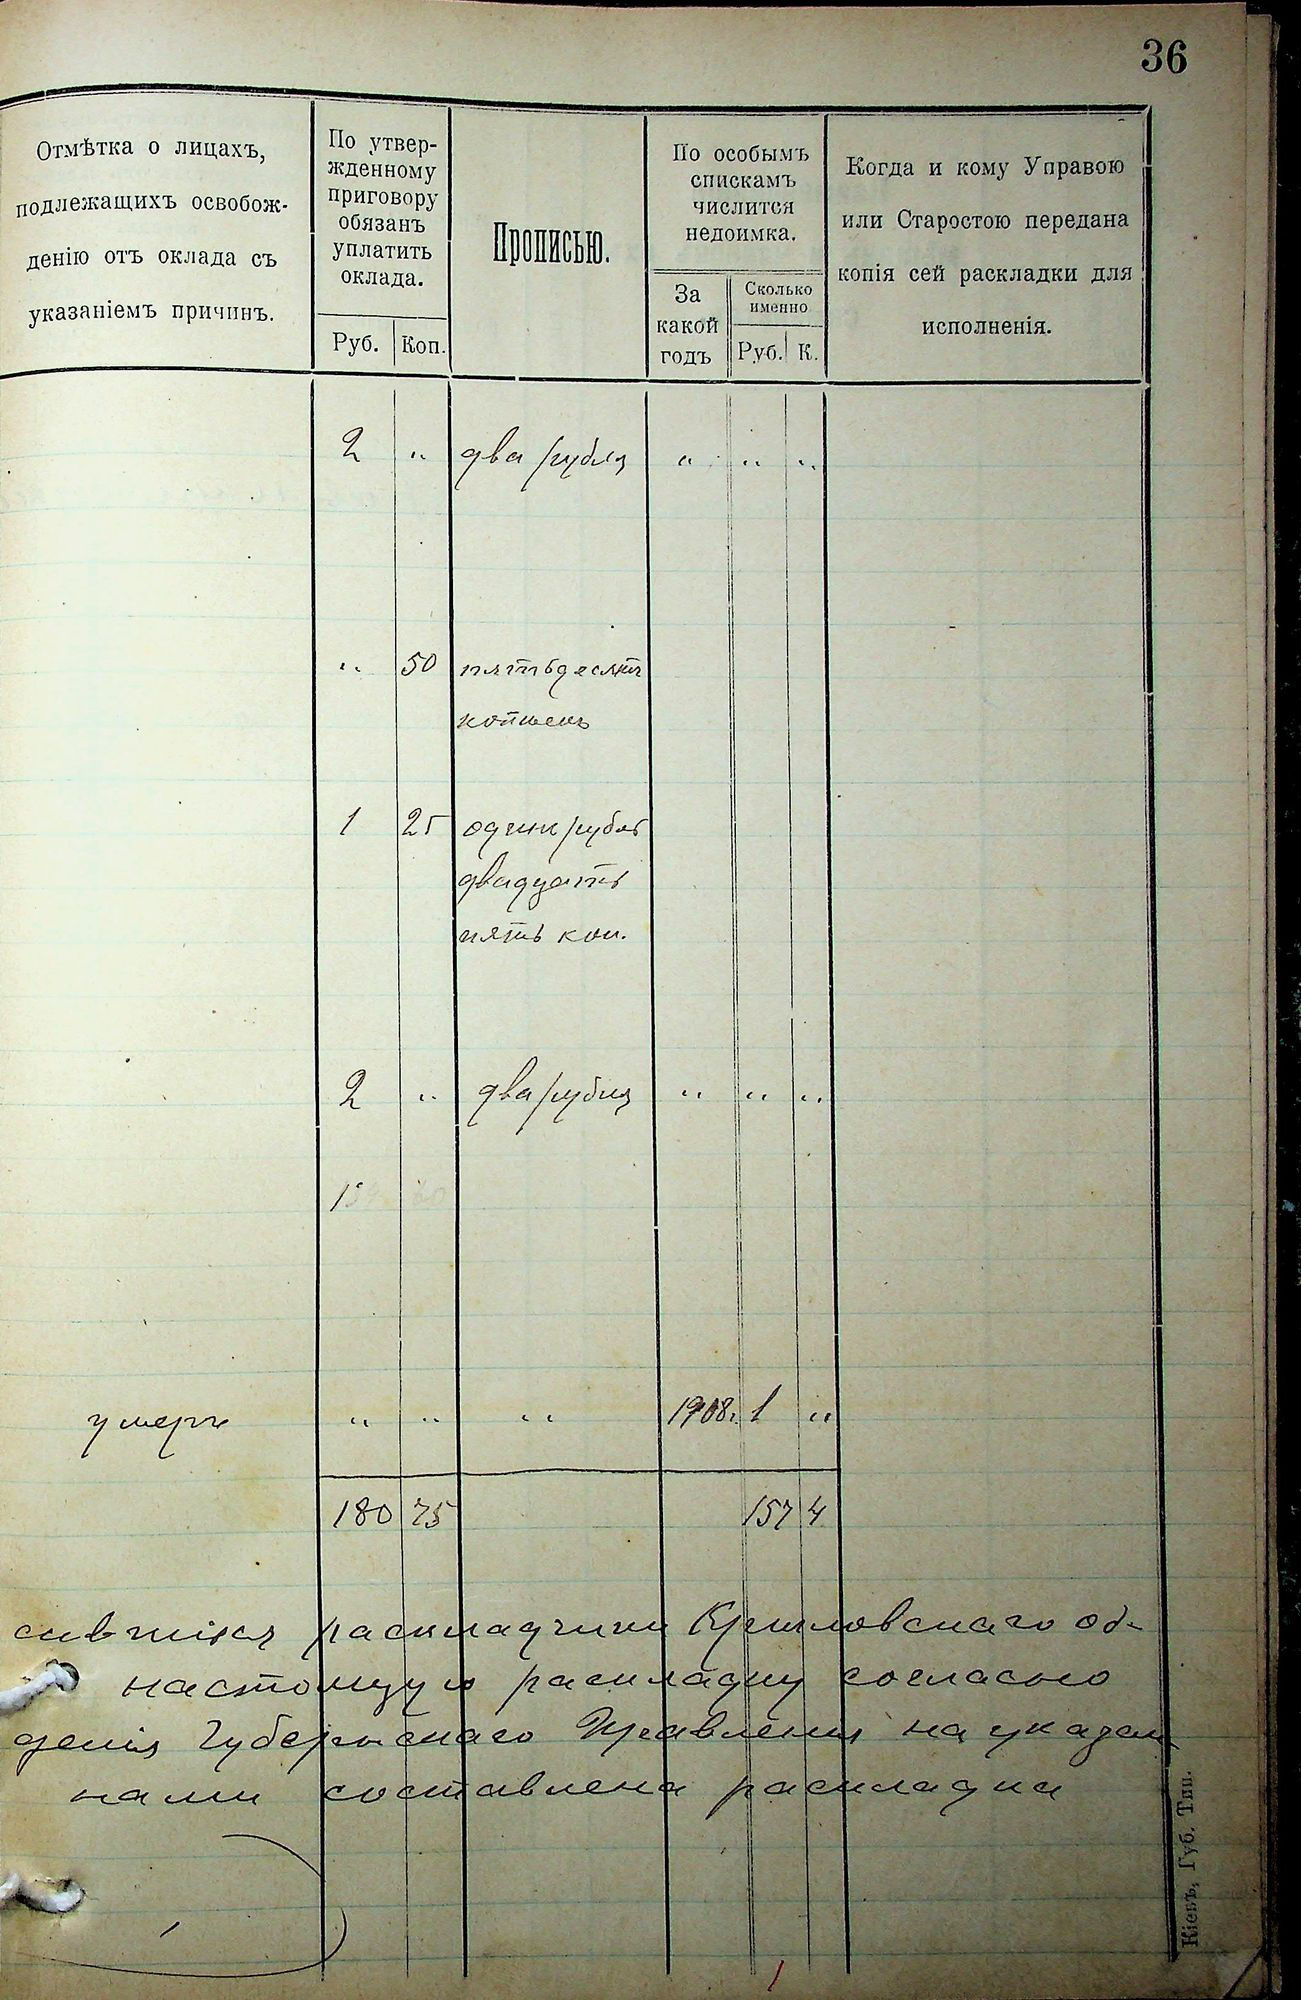 36
Отмѣтка о лицахъ,
подлежащихъ освобож-
денію отъ оклада съ
указаніемъ причинъ.
По утвер-
жденному
приговору
обязанъ
уплатить
оклада.
Руб. Коп.
Прописью.
По особымъ
спискамъ
числится
недоимка.
За
какой
годъ
Сколько
именно
Руб. К.
Когда и кому Управою
или Старостою передана
копія сей раскладки для
исполненія.
2 " два рубля " " "
" 50 пятьдесятъ
копѣекъ
1 25 одинъ рубль
двадцать
пять коп.
2 " два рубля " " "
1
умеръ " " " 1908г. 1 "
180 75 157 4
раскладчики Крыловскаго об-
настоящую раскладку согласно
денія Губернскаго Правленія на указан
нами составлена раскладка
Кіевъ, Губ. Тип.